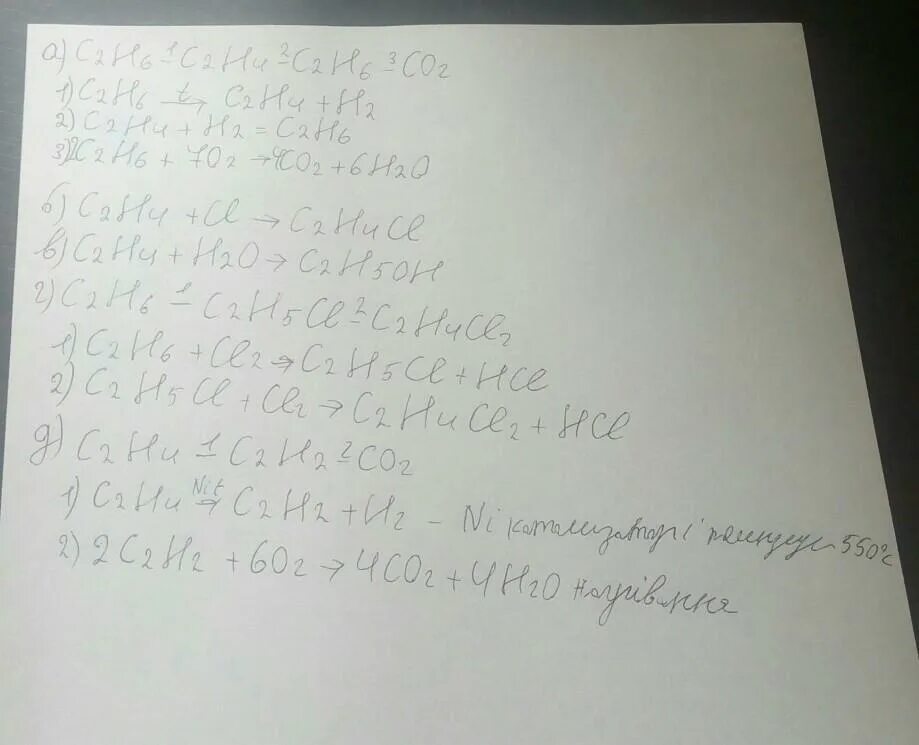 а) C2H6 -1 C2H4 -2 C2H6 -3 CO2
1) C2H6 t→ C2H4 + H2
2) C2H4 + H2 = C2H6
3) 2C2H6 + 7O2 → 4CO2 + 6H2O
б) C2H4 + Cl → C2H4Cl
в) C2H4 + H2O → C2H5OH
г) C2H6 -1 C2H5Cl -2 C2H4Cl2
1) C2H6 + Cl2 → C2H5Cl + HCl
2) C2H5Cl + Cl2 → C2H4Cl2 + HCl
д) C2H4 -1 C2H2 -2 CO2
1) C2H4 Ni t→ C2H2 + H2 - Ni каталізатор і 550°C
2) 2C2H2 + 6O2 → 4CO2 + 4H2O нагрівання